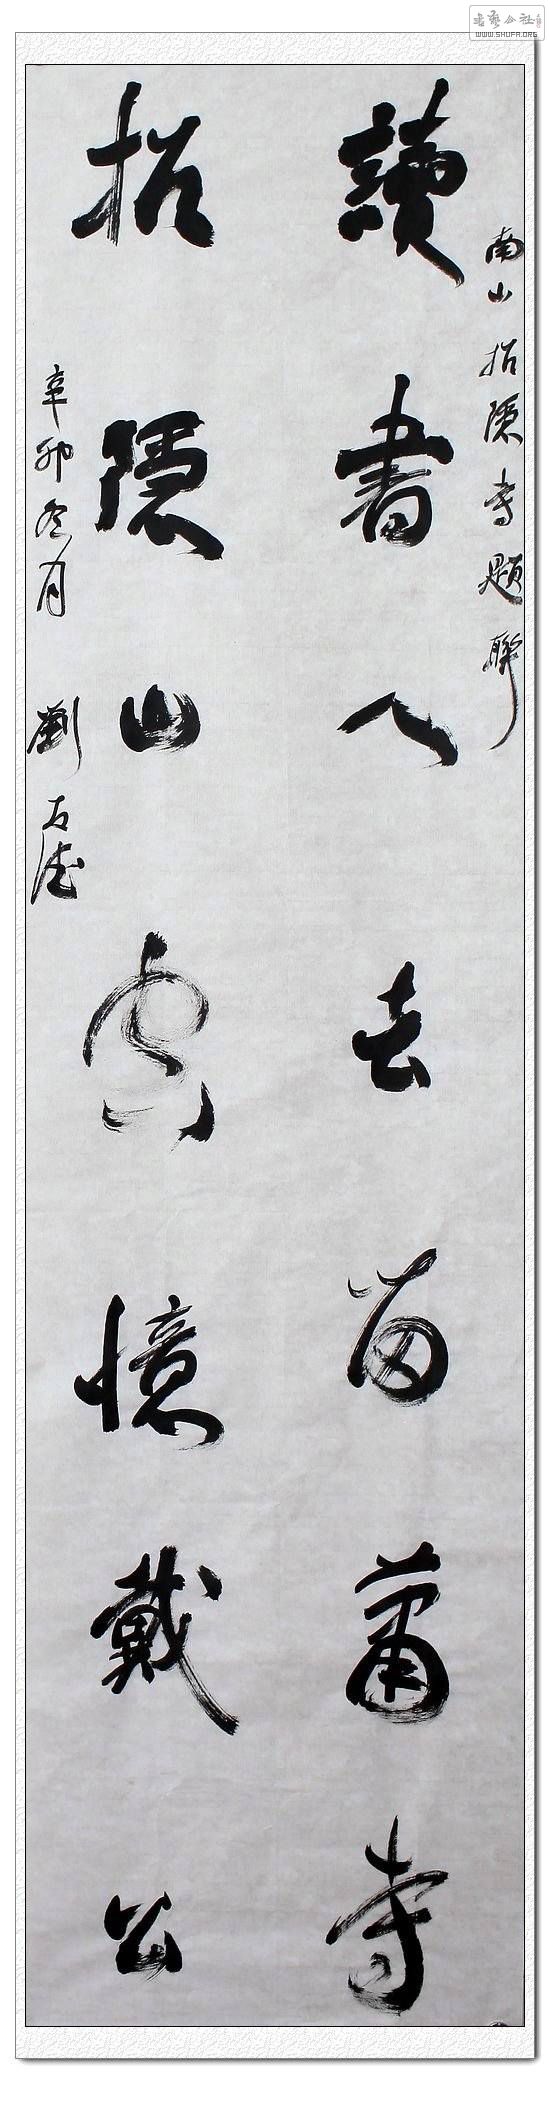 书艺公社
WWW.SHUFA.ORG
南山招隱寺題聯
讀書人去留蕭寺
招隱山空憶戴公
辛卯冬月 劉